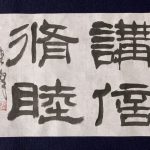 講信
脩睦